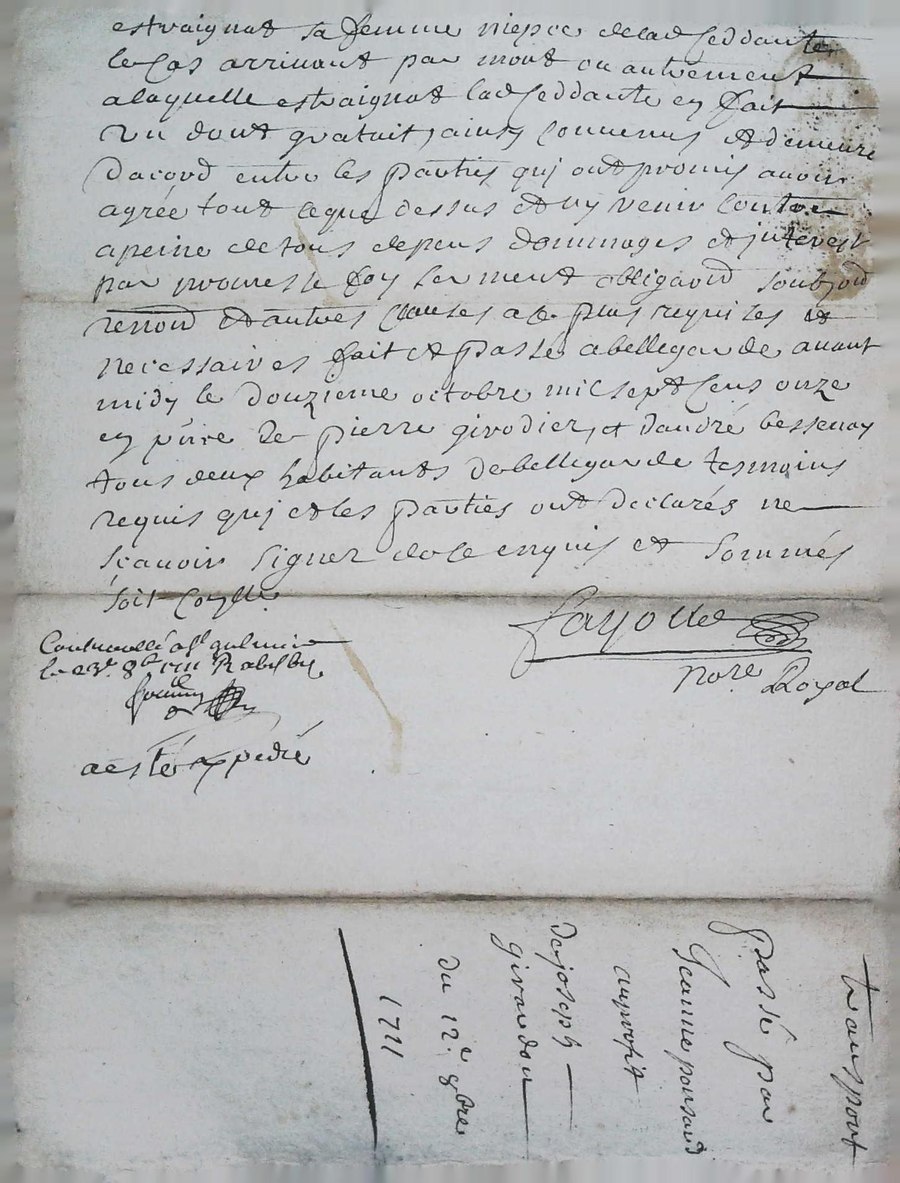 estraignat sa femme niepce de lad ceddante
le cas arrivant par mort ou autrement
a laquelle estraignat lad ceddante en fait
un dont gratuit, ainsy convenus et demeure
dacord entre les parties qui ont promis avoir
agrée tout ce que dessus et ny venir contre
a peine de tous depens dommages et interest
par promesse foy serment obligaōn
renon̄ et autres clauses a ce plus requises et
necessaires fait et passé a bellegarde avant
midy le douzieme octobre mil sept cens onze
en pn̄ce de pierre girodier, et dandré bessenay
tous deux habitants de bellegarde tesmoins
requis qui et les parties ont declarés ne
scavoir signer de ce enquis et sommés
soit
Fayolle
Nore Royal
Controuollé a St galmier
le 23e 8b 1711 R
a esté expedié
transport
passé par
Jeanne ponsard
au profit
de joseph
girardon
du 12e 8bre
1711